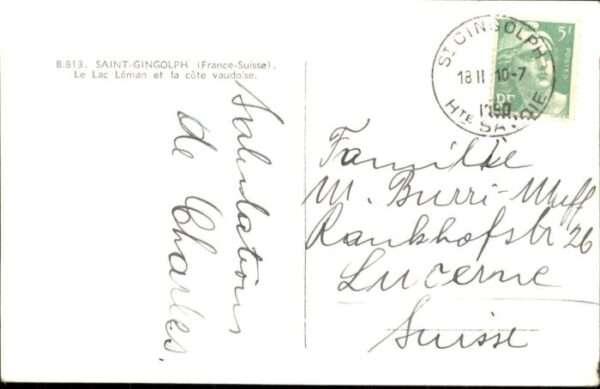 B.813. SAINT-GINGOLPH (France-Suisse).
Le Lac Léman et la côte vaudoise.
Salutations
de Charles.
ST GINGOLPH
18 II 10-7
HTE SAVOIE
5F
POSTES
RF
Famille
M. Burri-Muff
Rankhofstr 26
Lucerne
Suisse